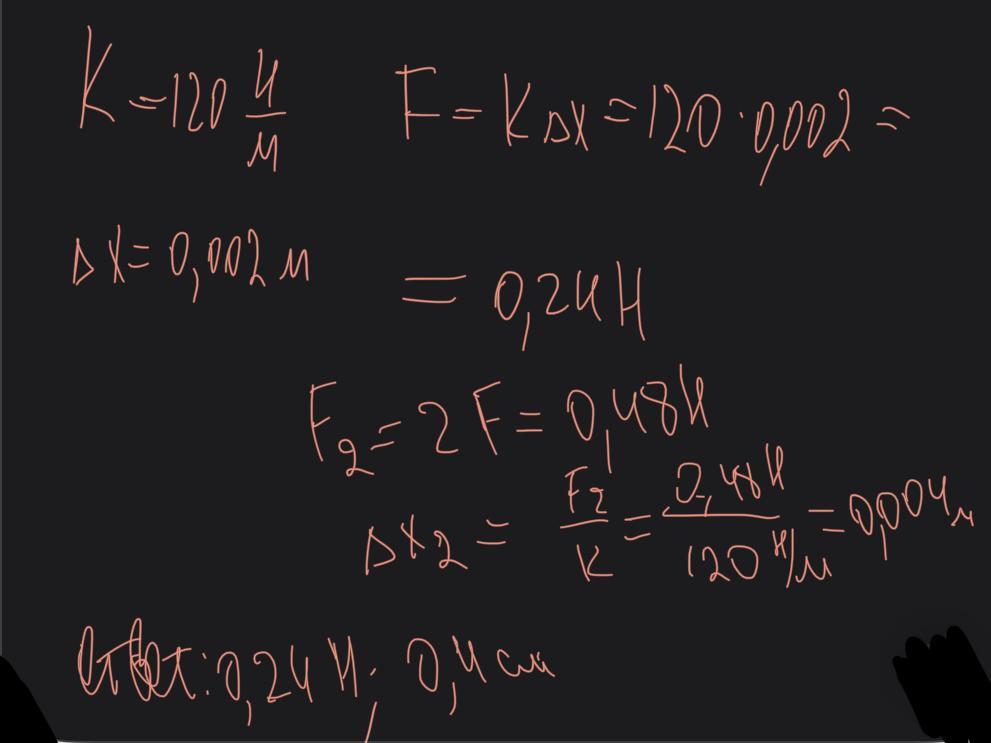 K = 120 Н/м F = K Δx = 120 · 0,002 =
Δx = 0,002 м
= 0,24 Н
F₂ = 2F = 0,48 Н
Δx₂ = F₂/K = 0,48 Н/120 Н/м = 0,004 м
Ответ: 0,24 Н; 0,4 см